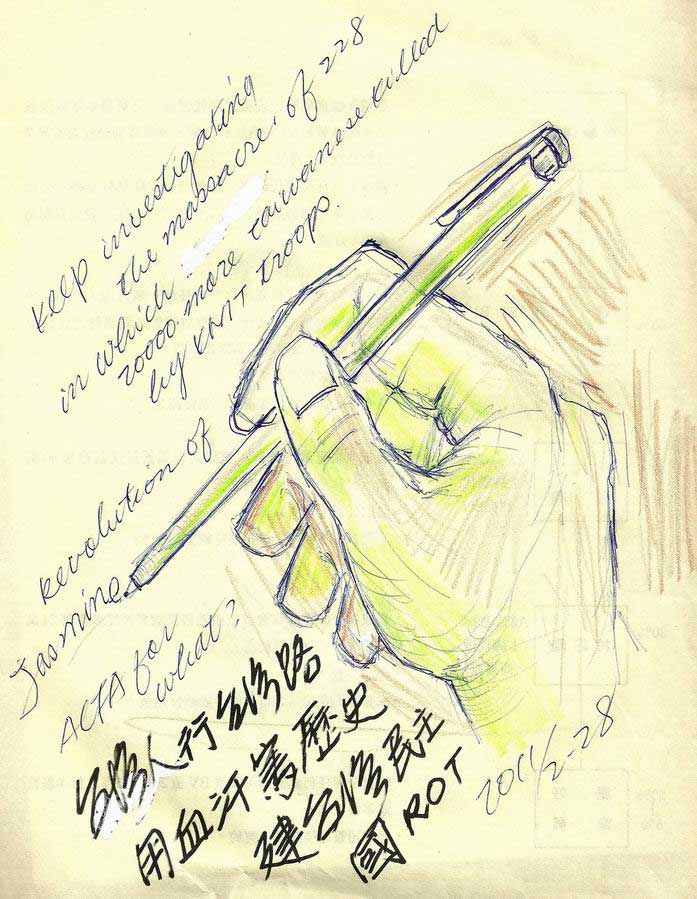 keep investigating
the massacre. of 228
in which
20000. more taiwanese killed
by KMT troops.
revolution of
Jasmine
ACTA for
what?
台湾人行台湾路
用血汗寫歷史
建台湾民主
國 ROT
2011/2-28